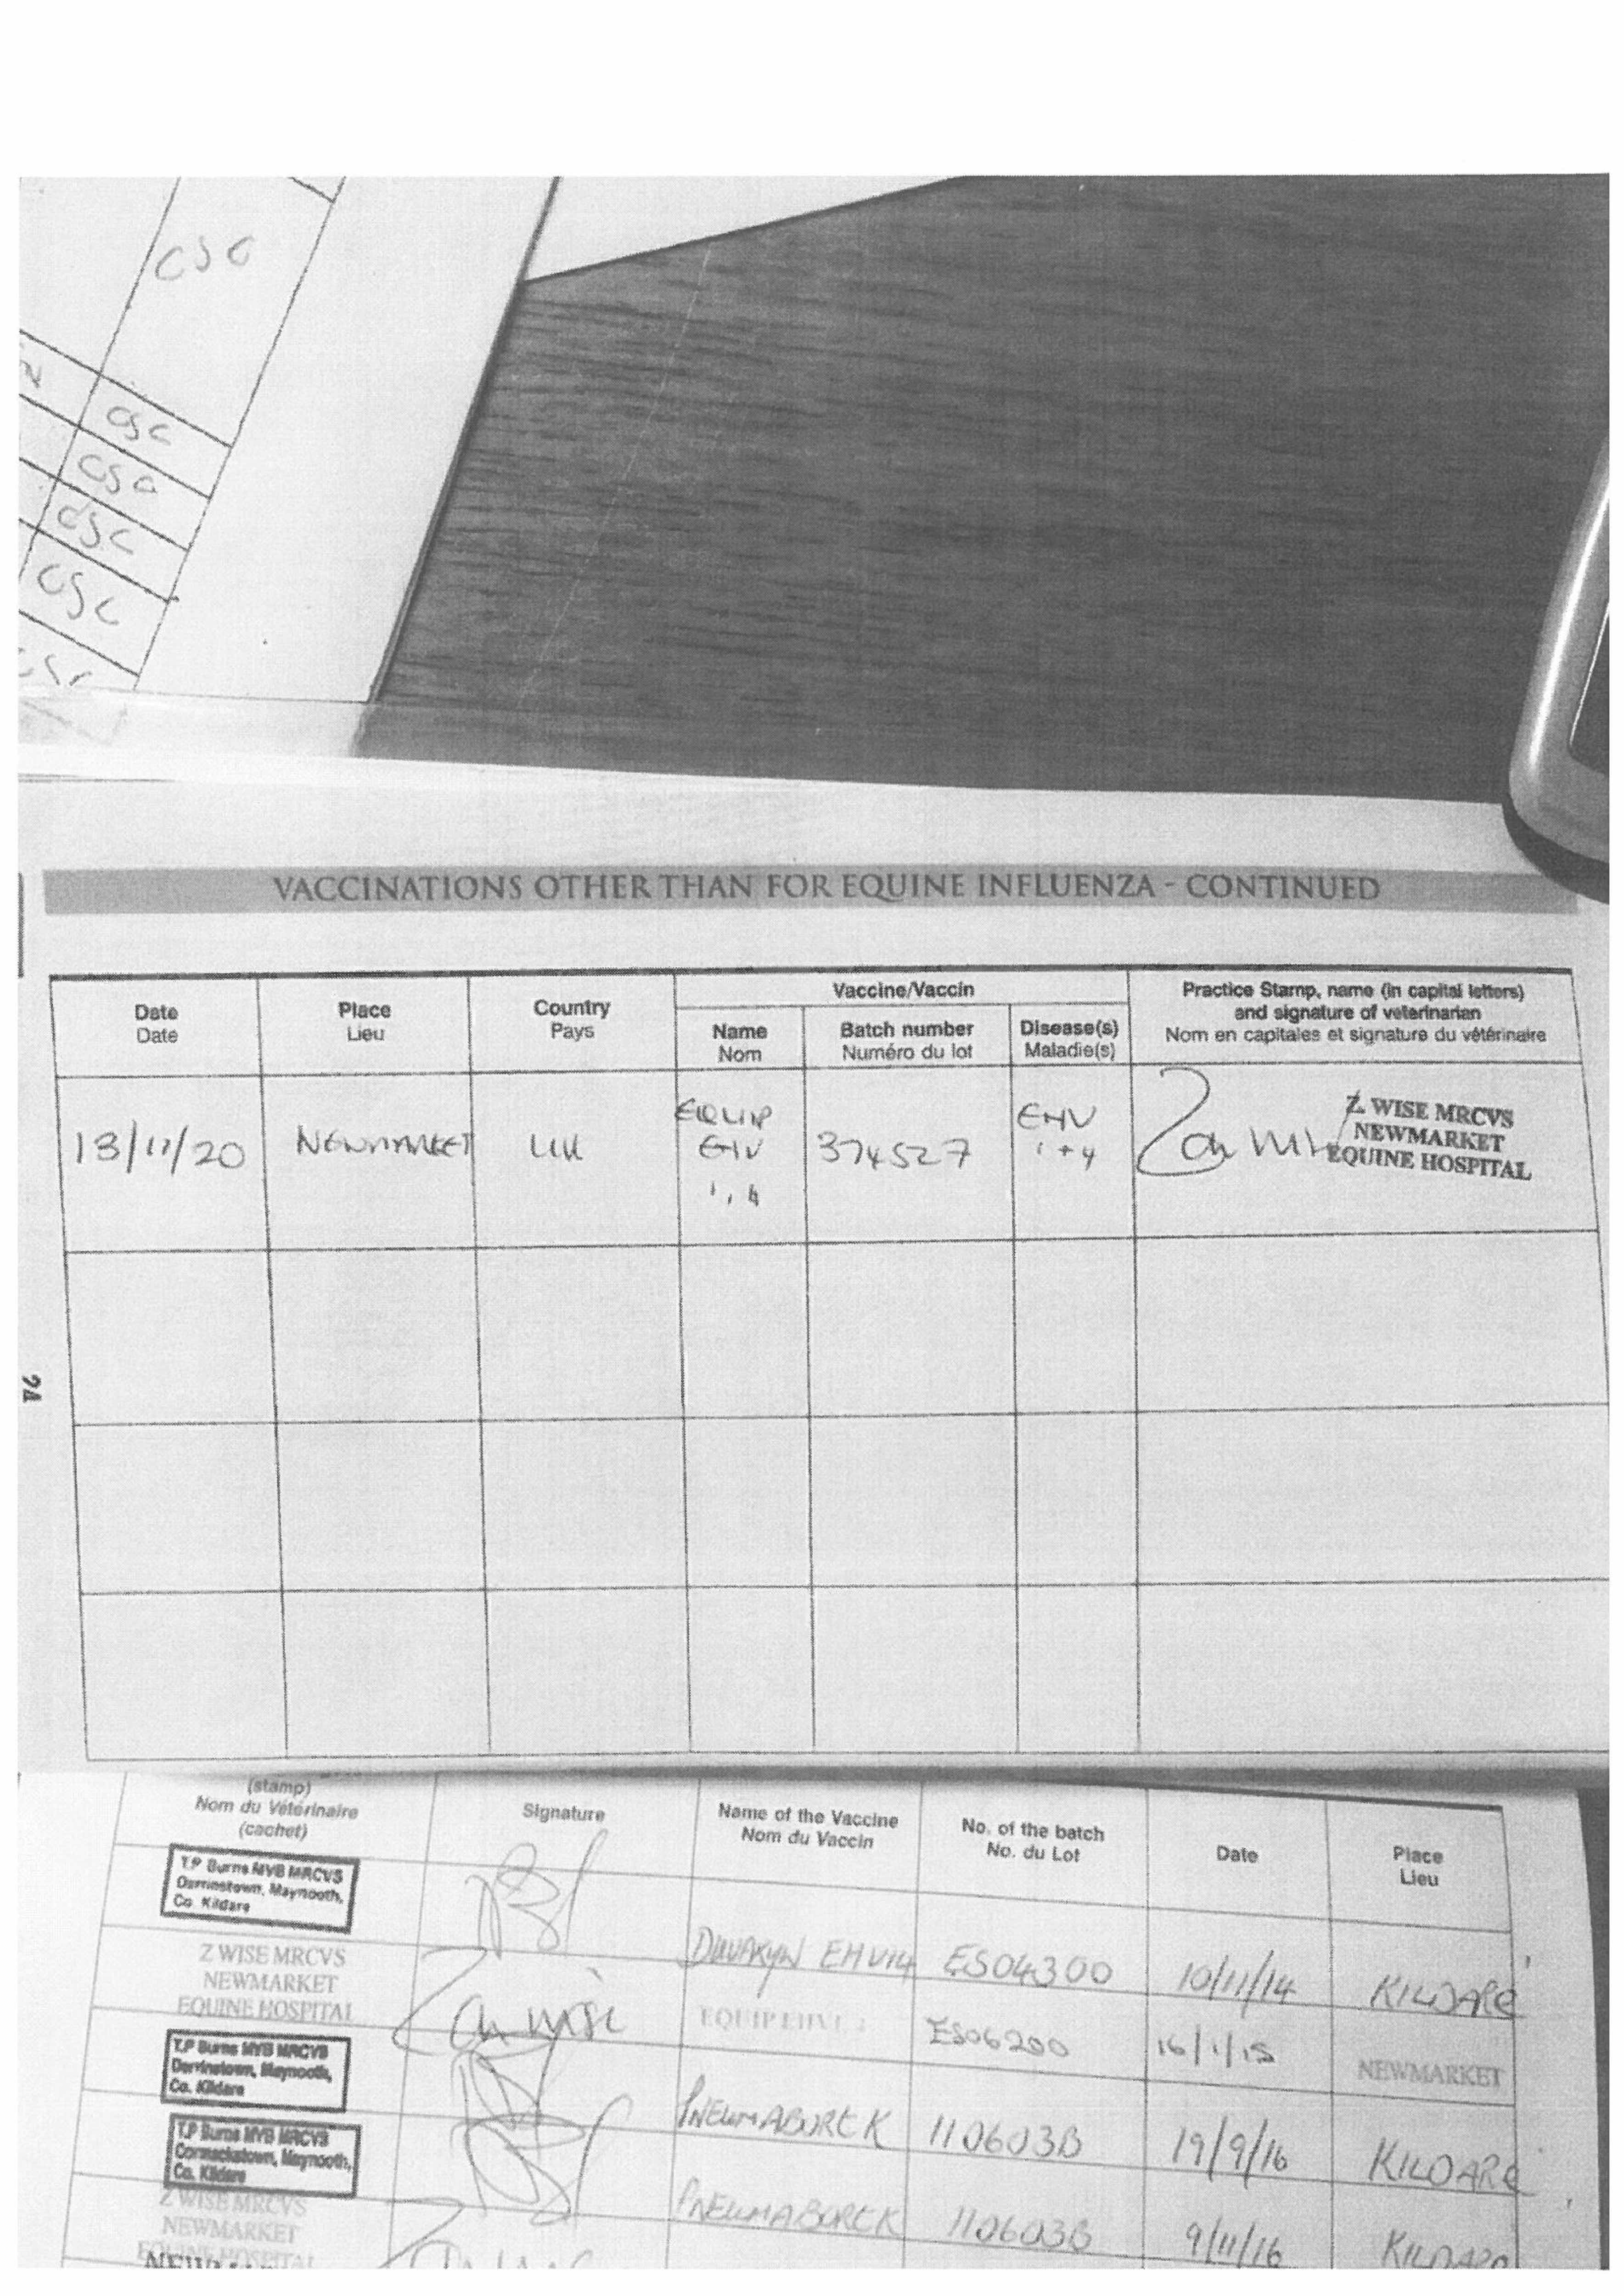 CSC
N
CSC
CSC
CSC
CSC
VACCINATIONS OTHER THAN FOR EQUINE INFLUENZA - CONTINUED
Date Place Country Vaccine/Vaccin Practice Stamp, name (in capital letters)
Date Lieu Pays Name Batch number Disease(s) and signature of veterinarian
Nom Numéro du lot Maladie(s) Nom en capitales et signature du vétérinaire
13/11/20 NEWMARKET UK EQUIP EHV 1,4 374527 EHV 1+4 Z WISE MRCVS
NEWMARKET
EQUINE HOSPITAL
(stamp)
Nom du Vétérinaire Signature Name of the Vaccine No. of the batch Date Place
(cachet) Nom du Vaccin No. du Lot Lieu
T.P Burns MVB MRCVS
Derrinstown, Maynooth,
Co. Kildare
DUVAXYN EHV14 ES04300 10/11/14 KILDARE
Z WISE MRCVS
NEWMARKET
EQUINE HOSPITAL
Zoe Wise EQUIP EHV1,4 ES06200 16/1/15 NEWMARKET
T.P Burns MVB MRCVS
Derrinstown, Maynooth,
Co. Kildare
PNEUMABORT K 110603B 19/9/16 KILDARE
T.P Burns MVB MRCVS
Cormackstown, Maynooth,
Co. Kildare
PNEUMABORT K 110603B 9/11/16 KILDARE
Z WISE MRCVS
NEWMARKET
EQUINE HOSPITAL